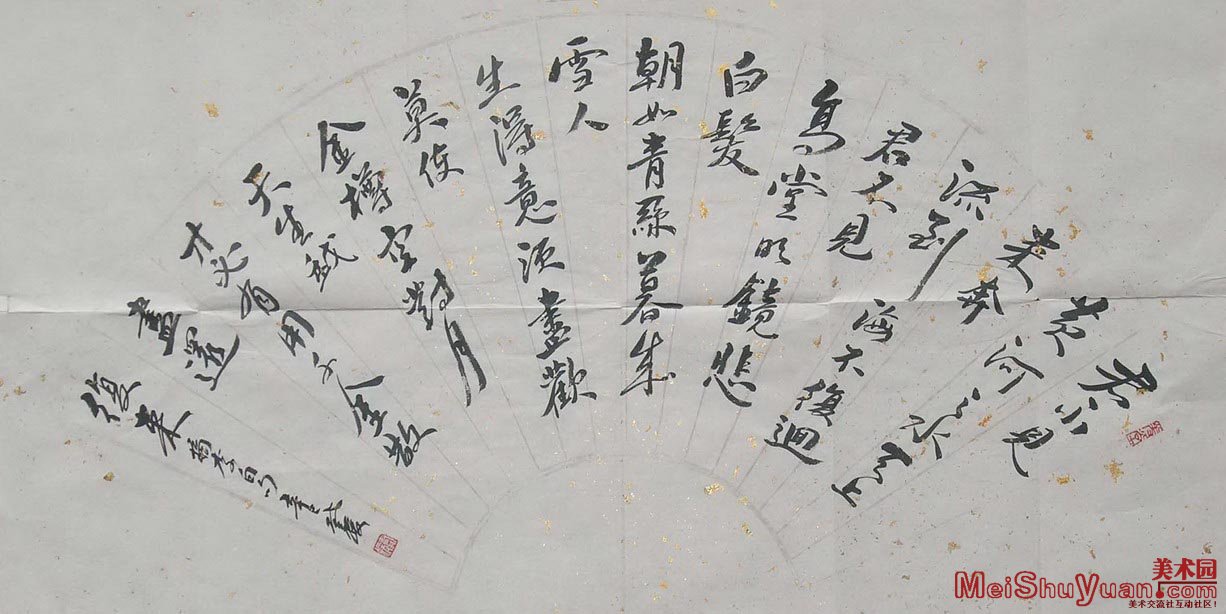 君不見
黄河之水天上
来奔
流到海不復迴
君不見
高堂明鏡悲
白髮
朝如青絲暮成
雪人
生得意須盡歡
莫使
金樽空對月
天生我
才必有用千金散
盡還
復来
美术园
MeiShuYuan.com
美术交流社互动社区!